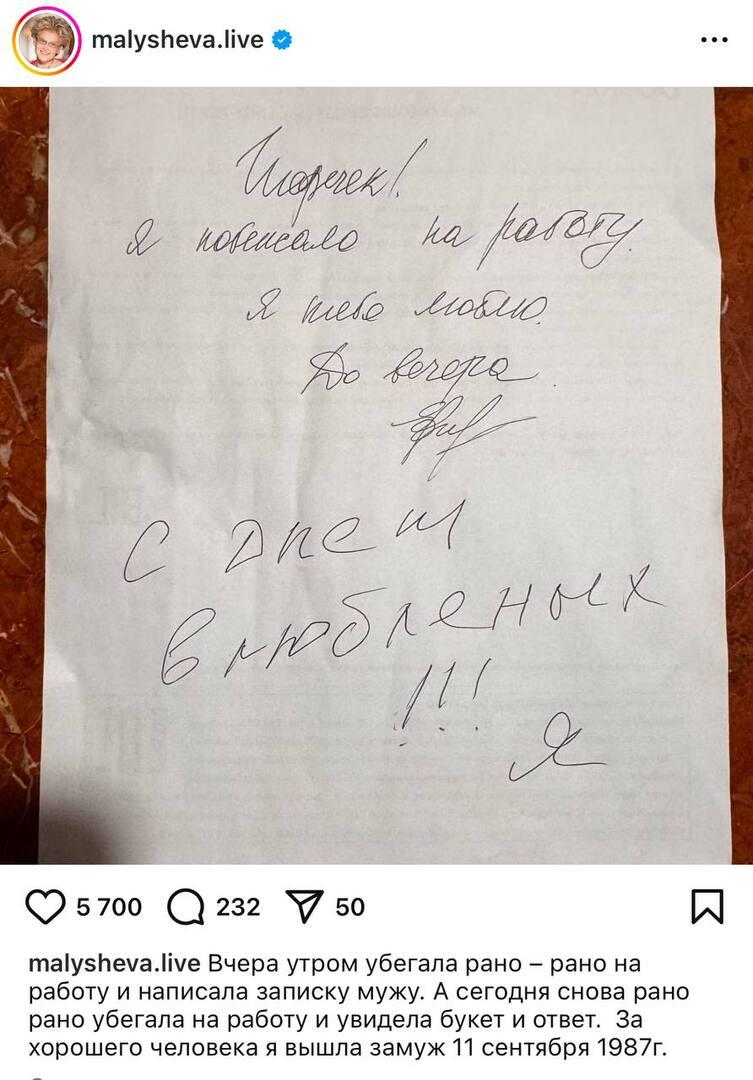 malysheva.live
Игоречек!
Я побежала на работу.
Я тебя люблю.
До вечера.
С Днем
влюбленых
!!!
Я
5 700 232 50
malysheva.live Вчера утром убегала рано – рано на
работу и написала записку мужу. А сегодня снова рано
рано убегала на работу и увидела букет и ответ. За
хорошего человека я вышла замуж 11 сентября 1987г.